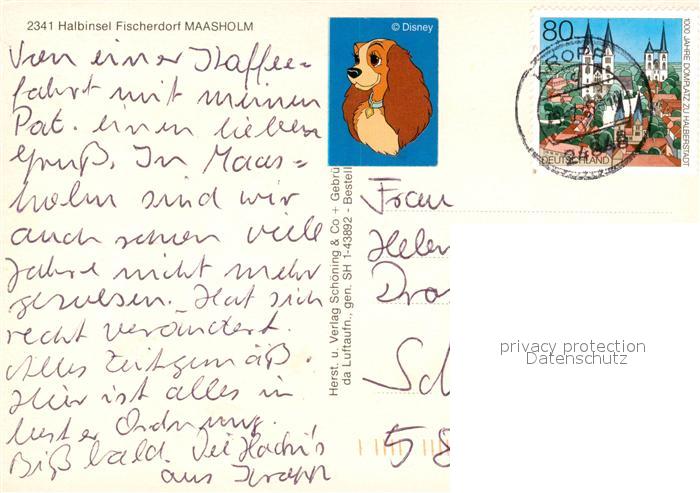 2341 Halbinsel Fischerdorf MAASHOLM
Von einer Kaffee=
fahrt mit meinen
Pat. einen lieben
Gruß. In Maas=
holm sind wir
auch schon viele
Jahre nicht mehr
gewesen. Hat sich
recht verändert.
Alles Zeitgemäß.
Hier ist alles in
bester Ordnung.
Biß bald. Die
aus
© Disney
Herst. u. Verlag Schöning & Co + Gebrü
da Luftaufn., gen. SH 1-43892 - Bestell
80
1000 JAHRE DOMPLATZ ZU HALBERSTADT
DEUTSCHLAND
Frau
Hele
Dra
Sch
58
privacy protection
Datenschutz